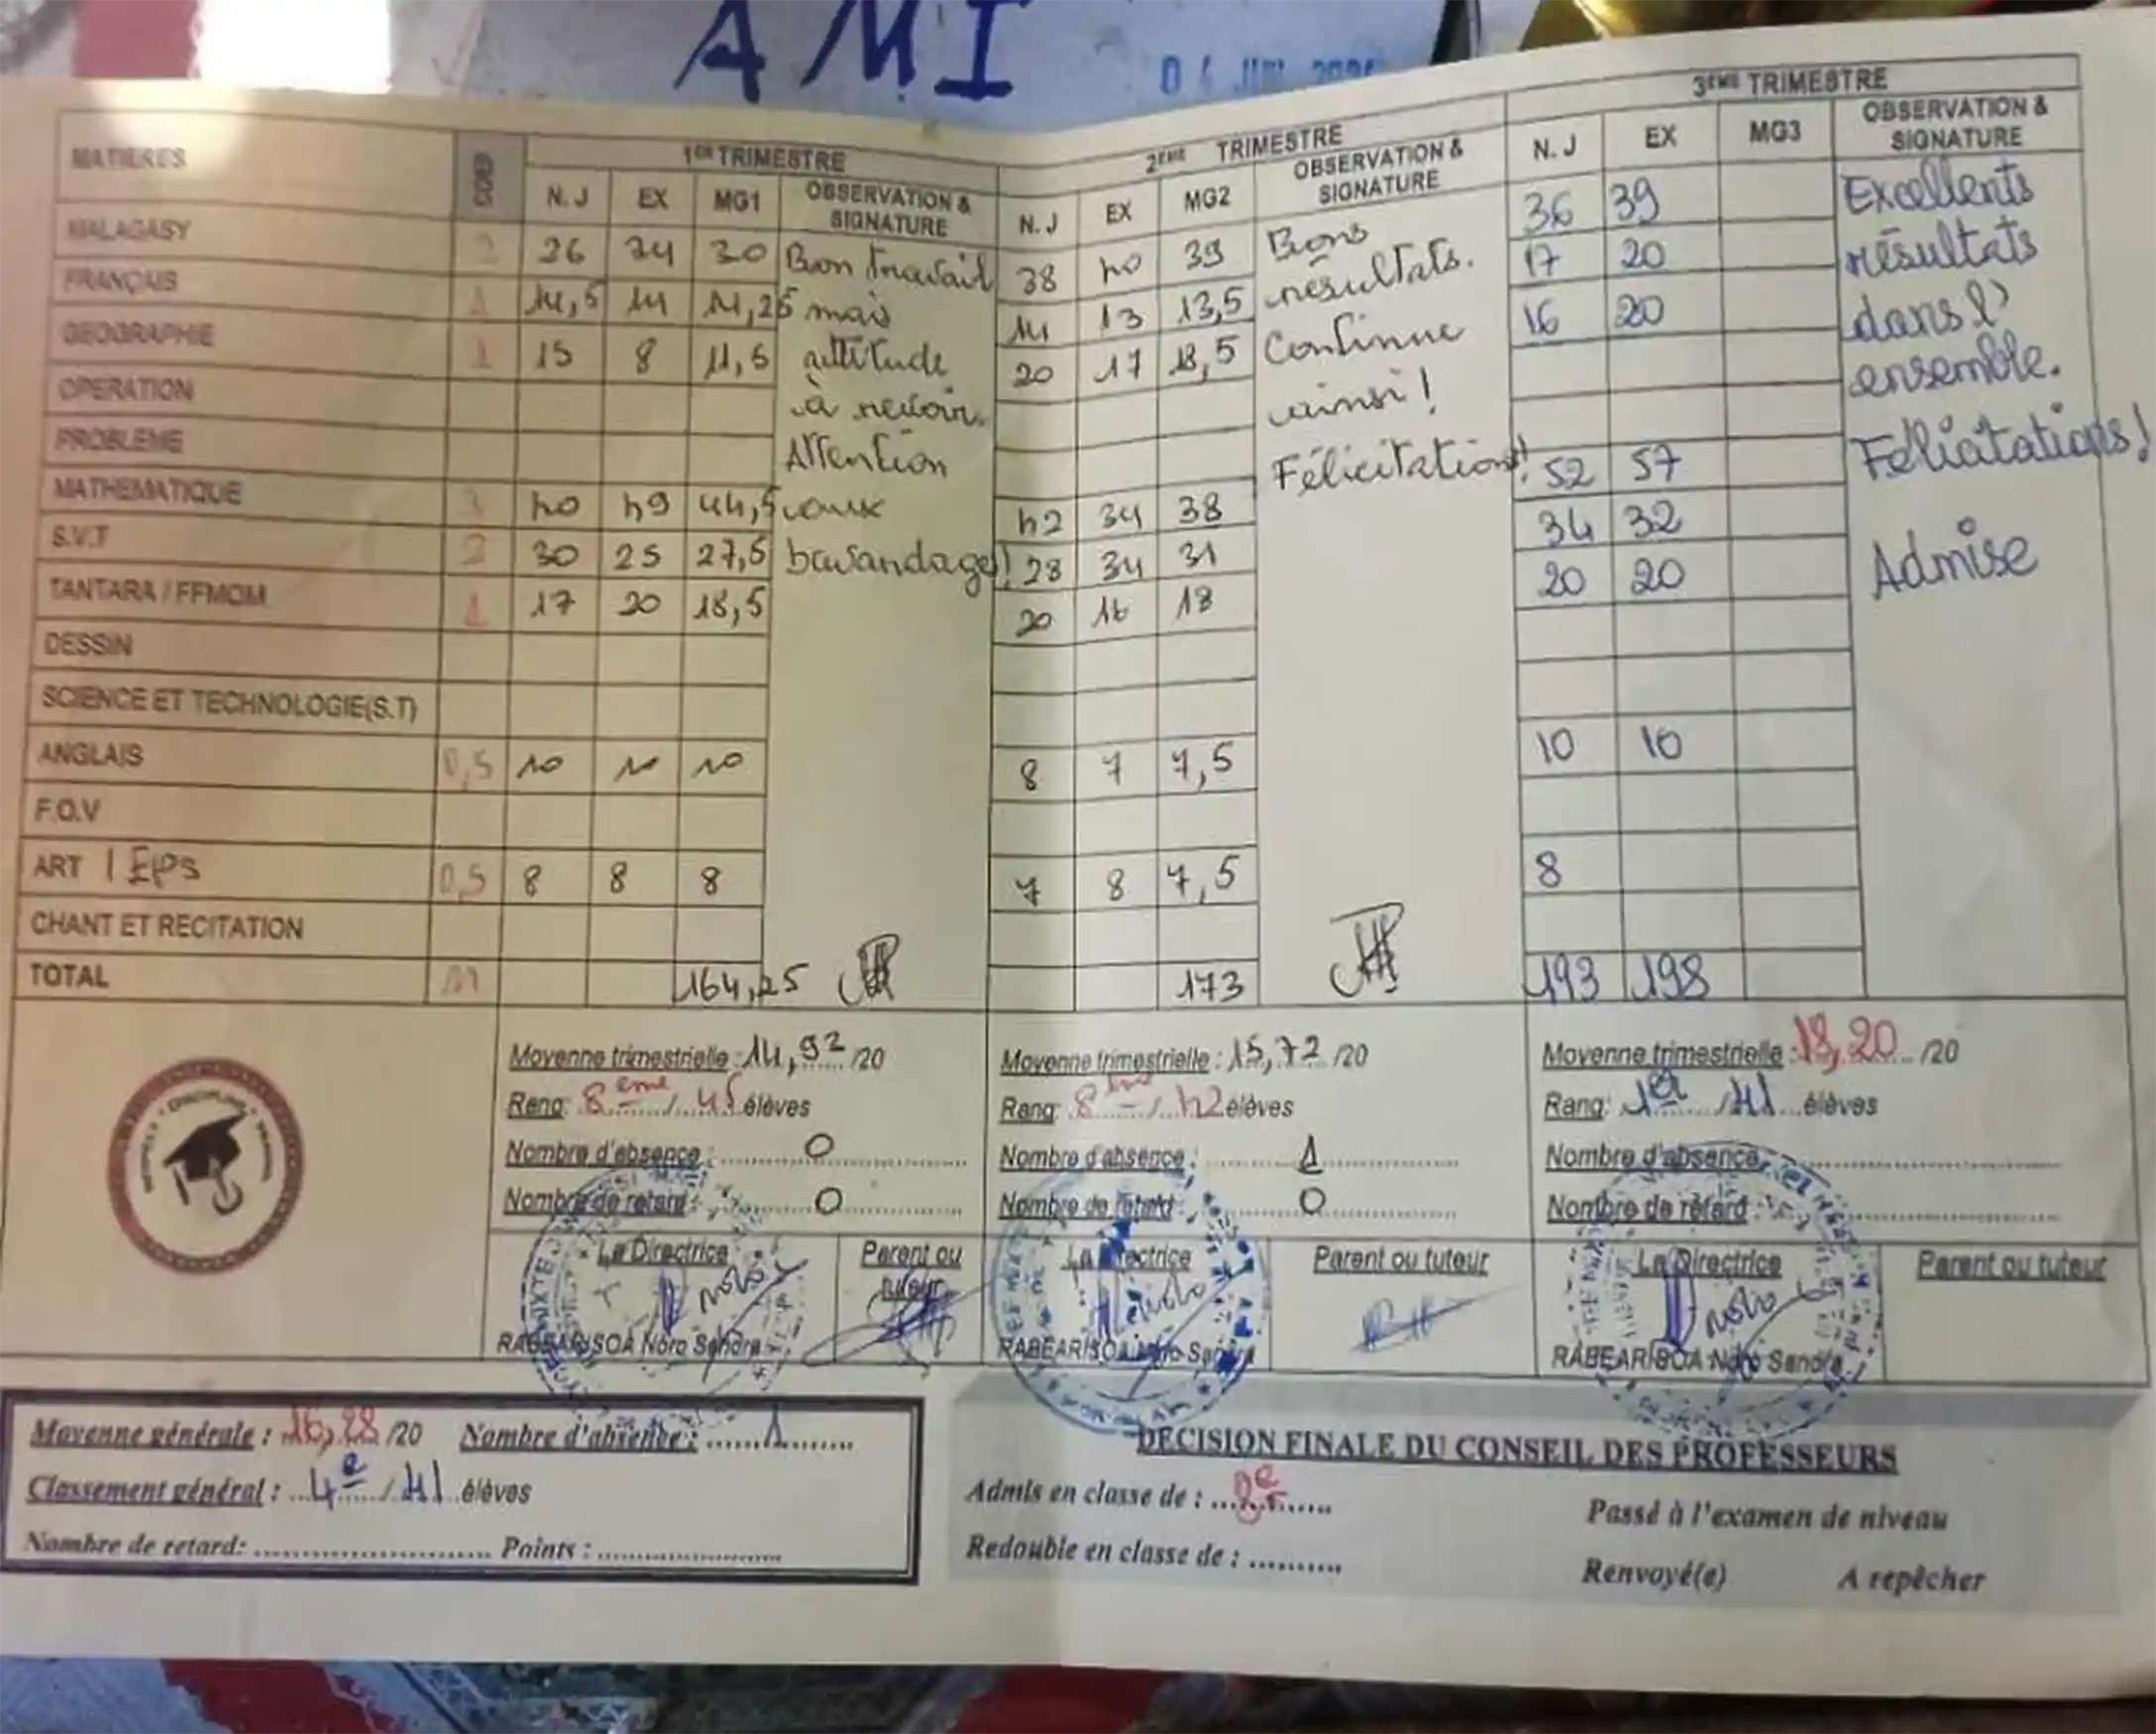 AMI
MATIERES COEF 1ER TRIMESTRE 2EME TRIMESTRE 3EME TRIMESTRE
N.J EX MG1 OBSERVATION & SIGNATURE N.J EX MG2 OBSERVATION & SIGNATURE N.J EX MG3 OBSERVATION & SIGNATURE
MALAGASY 2 26 34 30 Bon travail 38 40 39 Bons 36 39 Excellents
FRANÇAIS 1 14,5 14 14,25 mais 14 13 13,5 résultats. 17 20 résultats
GEOGRAPHIE 1 15 8 11,5 attitude 20 17 18,5 Continue 16 20 dans l'
OPERATION à revoir. ainsi ! ensemble.
PROBLEME Attention Félicitations! Félicitations!
MATHEMATIQUE 3 40 49 44,5 aux 42 34 38 52 57
S.V.T 2 30 25 27,5 bavardages! 28 34 31 34 32 Admise
TANTARA / FFMOM 1 17 20 18,5 20 16 18 20 20
DESSIN
SCIENCE ET TECHNOLOGIE(S.T)
ANGLAIS 0,5 10 10 10 8 7 7,5 10 10
F.O.V
ART / EPS 0,5 8 8 8 7 8 7,5 8
CHANT ET RECITATION
TOTAL 11 164,25 173 193 198
Moyenne trimestrielle : 14,92 /20 Moyenne trimestrielle : 15,72 /20 Moyenne trimestrielle : 18,20 /20
Rang: 8ème / 45 élèves Rang: 8ème / 42 élèves Rang: 1er / 41 élèves
Nombre d'absence : 0 Nombre d'absence : 1 Nombre d'absence :
Nombre de retard : 0 Nombre de retard : 0 Nombre de retard :
La Directrice Parent ou tuteur La Directrice Parent ou tuteur La Directrice Parent ou tuteur
RABEARISOA Noro Sandra RABEARISOA Noro Sandra RABEARISOA Noro Sandra
Moyenne générale : 16,28 /20 Nombre d'absence : 1
Classement général : 4e / 41 élèves
Nombre de retard: Points :
DECISION FINALE DU CONSEIL DES PROFESSEURS
Admis en classe de : 8e Passé à l'examen de niveau
Redouble en classe de : Renvoyé(e) A repêcher